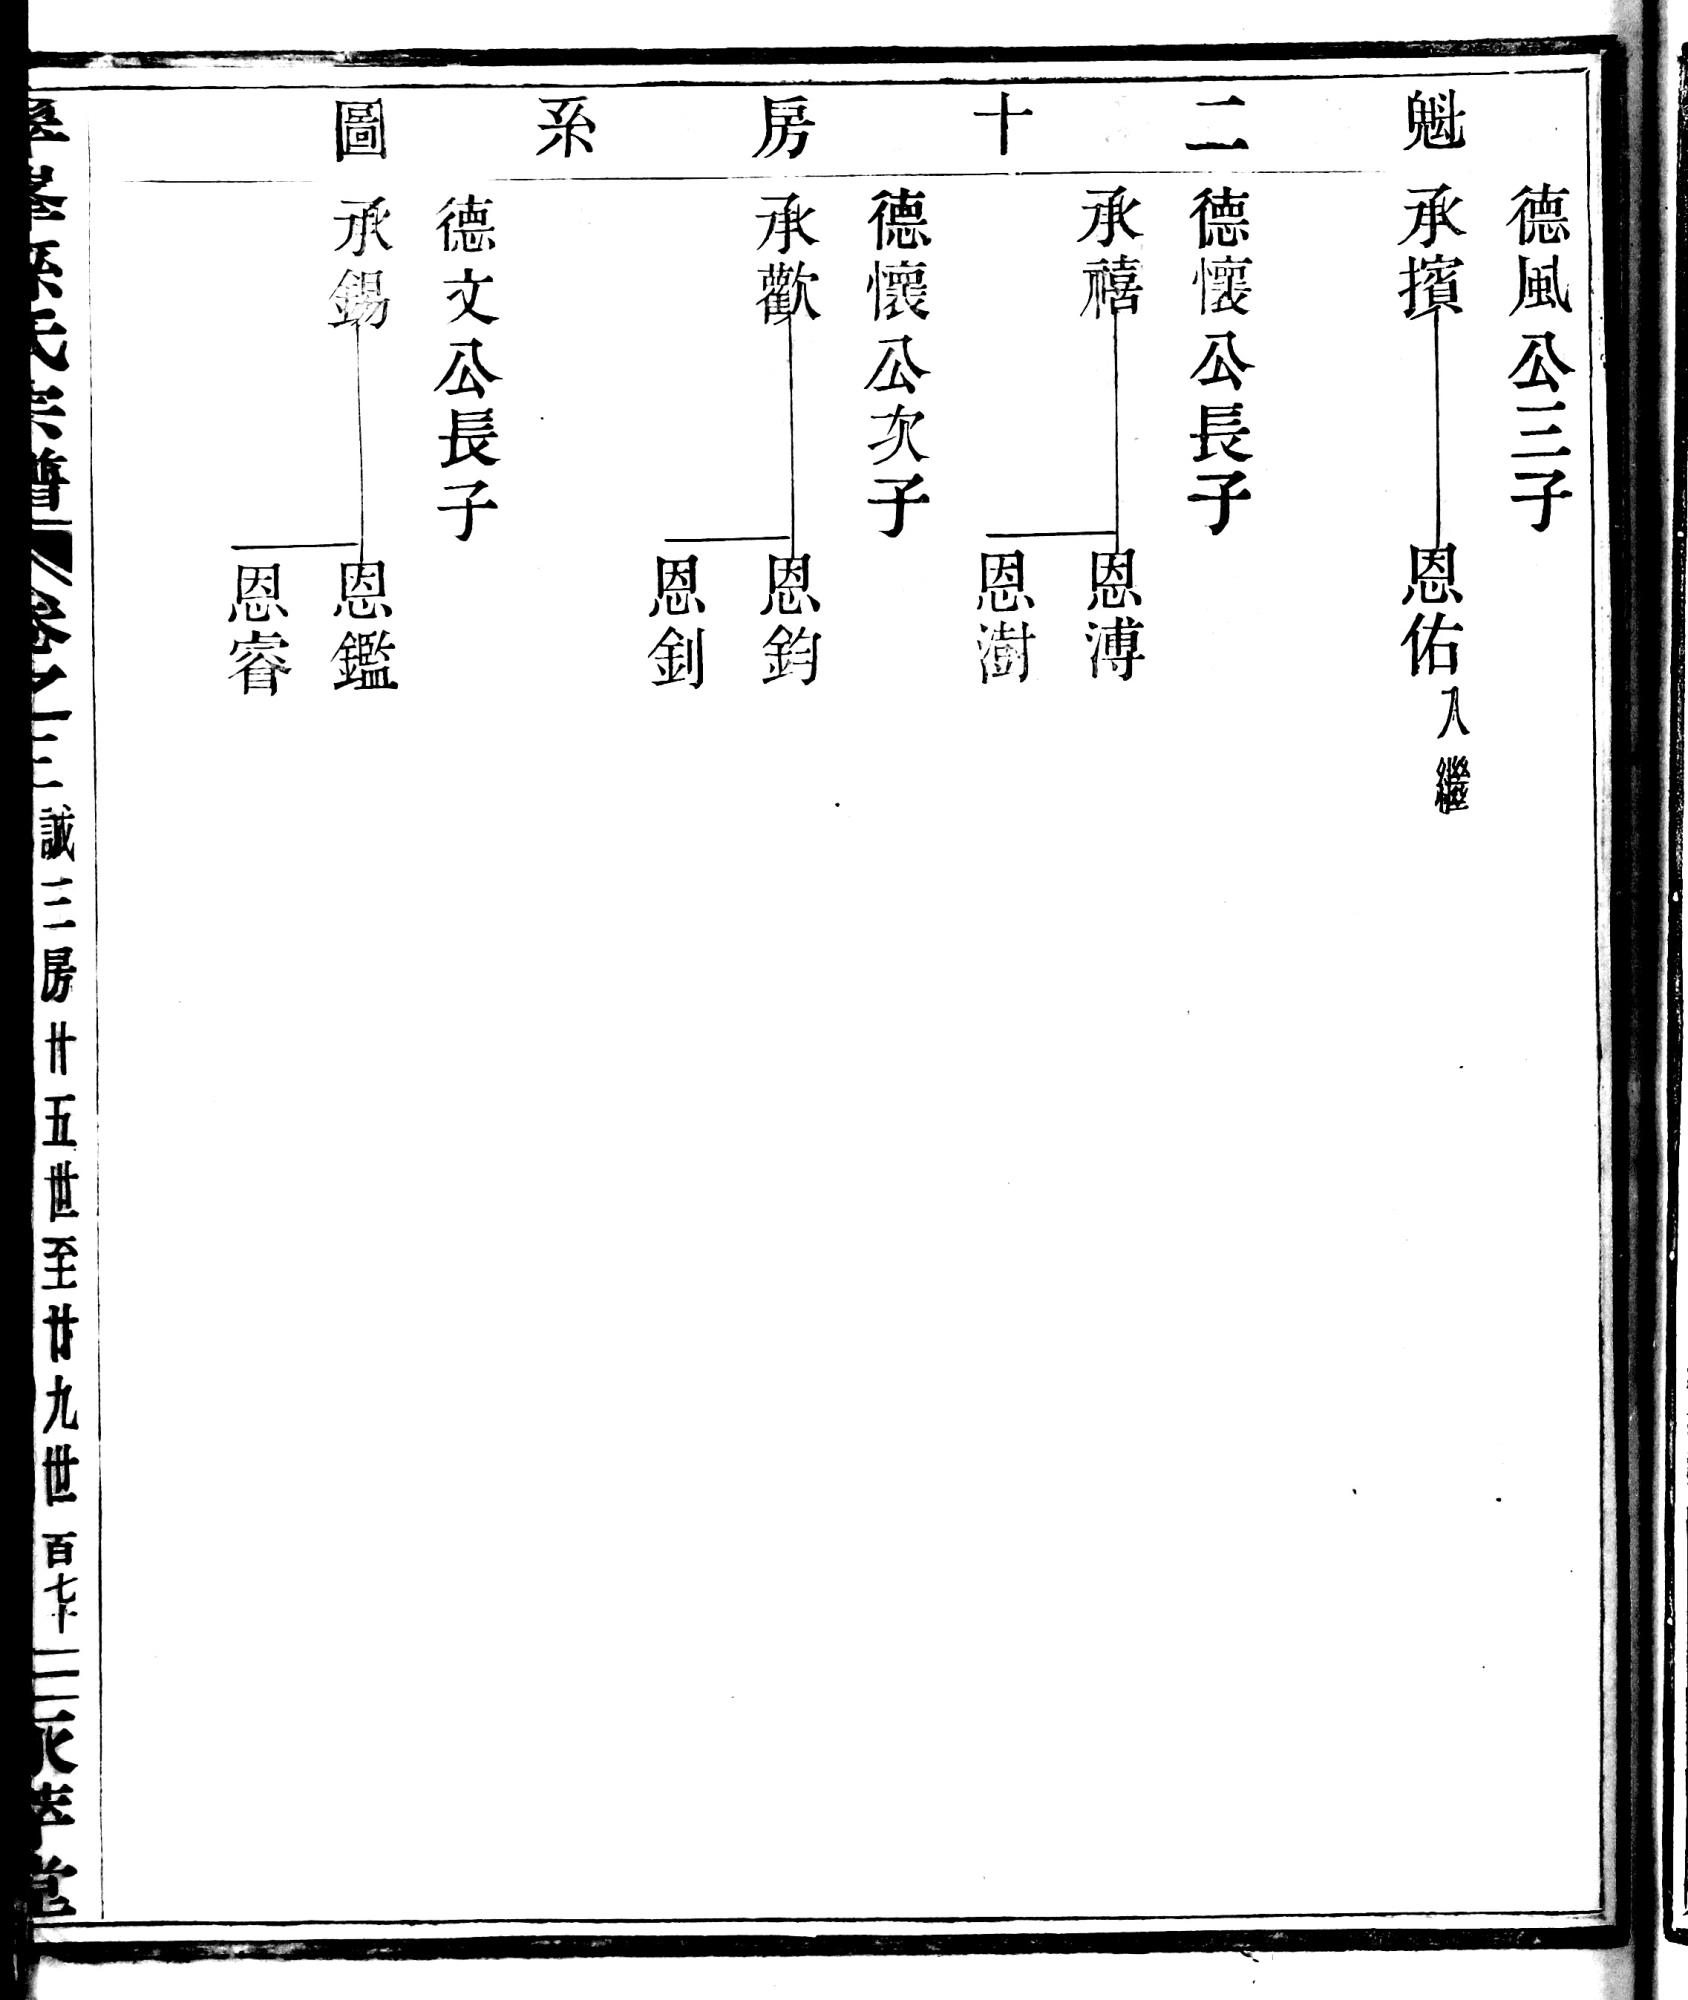 魁二十房系圖
德風公三子
承擯 恩佑 入繼
德懷公長子
承禧 恩溥
恩澍
德懷公次子
承歡 恩鈞
恩釗
德文公長子
承錫 恩鑑
恩睿
氏宗譜 卷之三 誠三房廿五世至廿九世 百七十二 堂